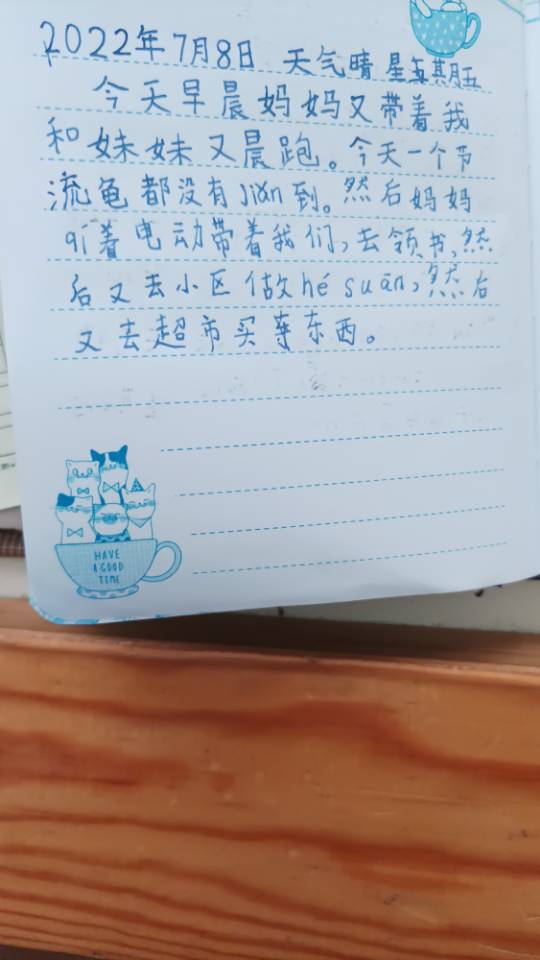 2022年7月8日 天气晴 星期五
今天早晨妈妈又带着我
和妹妹又晨跑。今天一个节
流龟都没有jiǎn到。然后妈妈
qí着电动带着我们,去领书,然
后又去小区做hé suān,然后
又去超市买东西。
HAVE
A GOOD
TIME